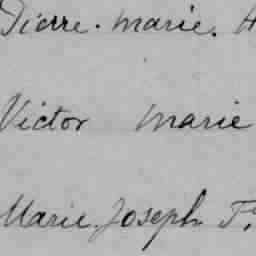 Pierre. Marie. H
Victor Marie
Marie. Joseph F.